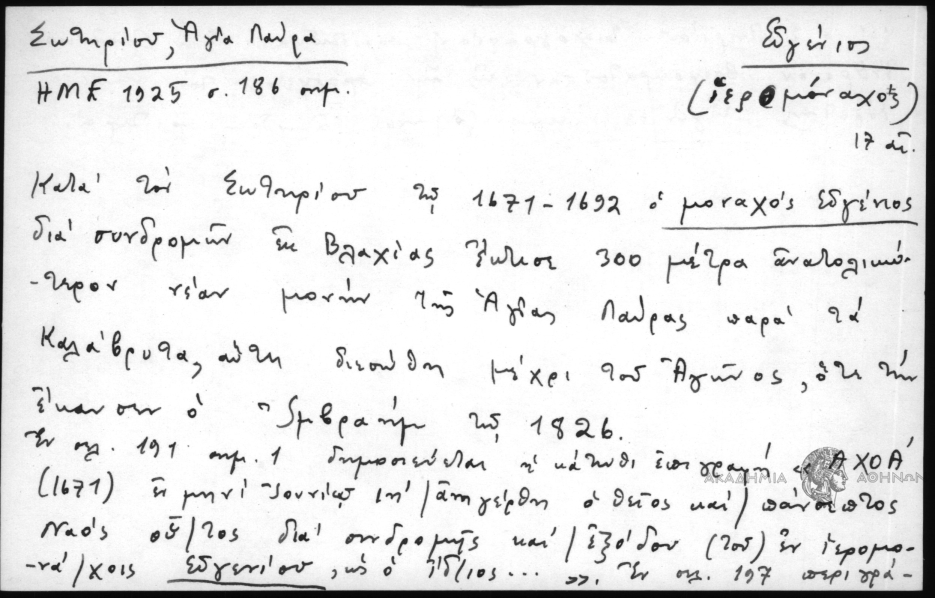 Σωτηρίου, Ἁγία Λαύρα
Εὐγένιος
ΗΜΕ 1925 σ. 186 σημ.
(ἱερομόναχος)
17 αἰ.
Κατά τόν Σωτηρίου τῷ 1671-1692 ὁ μοναχός Εὐγένιος
διά συνδρομῶν ἐκ Βλαχίας ἔκτισε 300 μέτρα ἀνατολικώ-
-τερον νέαν μονήν τῆς Ἁγίας Λαύρας παρά τά
Καλάβρυτα, αὕτη διεσώθη μέχρι τοῦ Ἀγῶνος, ὅτε τήν
ἔκαυσεν ὁ Ἰμβραήμ τῷ 1826.
Ἐν σελ. 191 σημ. 1 δημοσιεύεται ἡ κάτωθι ἐπιγραφή «ΑΧΟΑ
ΑΚΑΔΗΜΙΑ ΑΘΗΝΩΝ
(1671) ἐν μηνί Ἰουνίῳ ιη΄/ἀνηγέρθη ὁ θεῖος καί/πάνσεπτος
Ναός οὗ/τος διά συνδρομῆς καί/ἐξόδου (τοῦ) ἐν ἱερομο-
-νά/χοις Εὐγενίου, ὡς ὁ ἴδ/ιος... ». Ἐν σελ. 197 περιγρά-